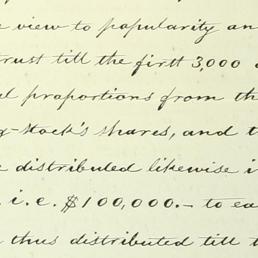 view to popularity an
trust till the first 3,000
proportions from th
stock's shares, and t
distributed likewise i
i.e. $100,000.- to ea
thus distributed till t